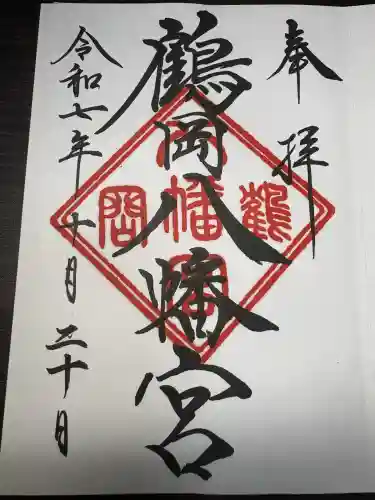 奉拝
鶴岡八幡宮
令和七年十月二十日
鶴
幡
岡